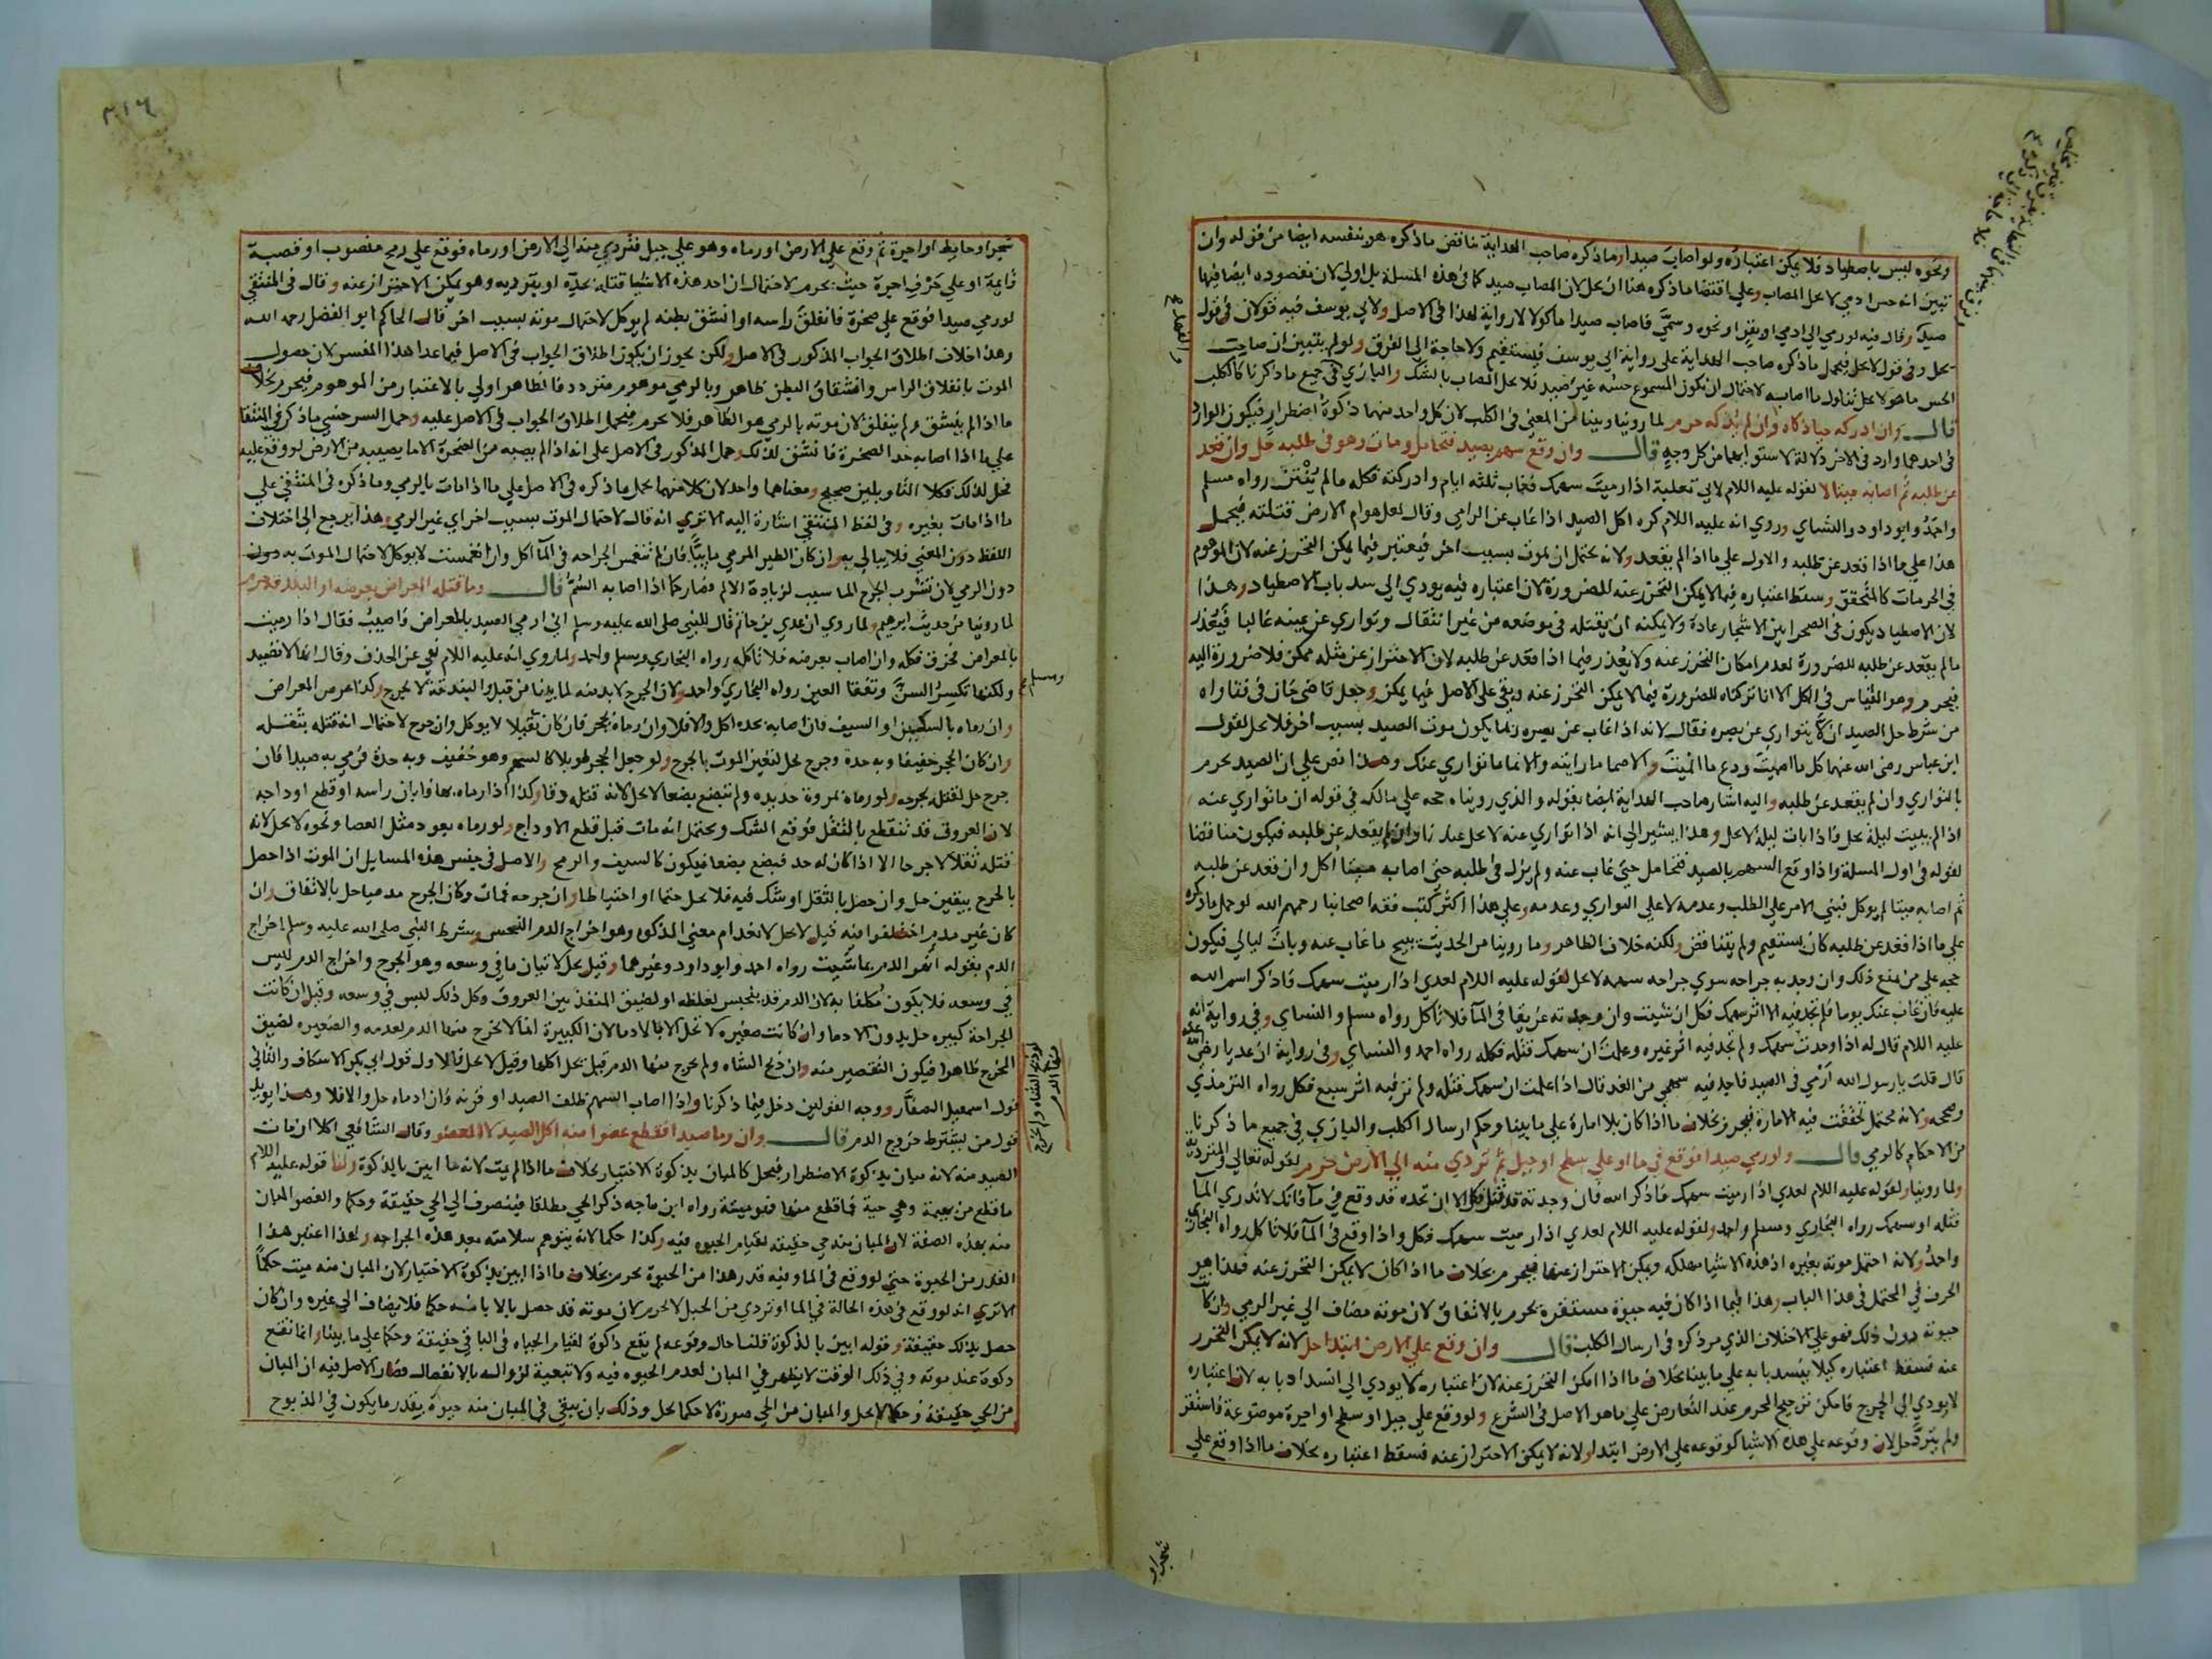 ونحوه ليس باصطياد فلا يمكن اعتباره ولو اصاب صيدا وما ذكره صاحب الهداية يناقض ما ذكره هو بنفسه ايضا من قوله وان
تبين انه حس ادمي لا يحل المصاب وعلى اقتضا ما ذكره هنا ان يحل لان المصاب صيد كما في هذه المسلة بل اولي لان مقصوده ايضا فيها
صيد وقال فيه لو رمي الي ادمي او بقر او نحوه وسمي فاصاب صيدا ماكولا لا رواية لهذا في الاصل ولابي يوسف فيه قولان في قول
يحل وفي قول لا يحل فيحمل ما ذكره صاحب الهداية على رواية ابي يوسف فيستقيم ولا حاجة الي الفرق ولو لم يتبين ان صاحب
الحس ما هو لا يحل تناول ما اصابه لاحتمال ان يكون المسموع حسه غير صيد فلا يحل المصاب بالشك والبازي في جميع ما ذكرنا كالكلب
قال وان ادركه حيا ذكاه وان لم يذكه حرم لما روينا وبينا من المعني في الكلب لان كل واحد منهما ذكوة اضطرار فيكون الوارد
في احدهما وارد في الاخر دلالة لاستوايهما من كل وجه قال وان وقع سهم بصيد فتحامل وغاب وهو في طلبه حل وان قعد
عن طلبه ثم اصابه ميتا لا لقوله عليه اللام لابي ثعلبة اذا رميت سهمك فغاب ثلثة ايام وادركته فكله ما لم ينتن رواه مسلم
واحمد وابو داود والنساي وروي انه عليه اللام كره اكل الصيد اذا غاب عن الرامي وقال لعل هوام الارض قتلته فيحمل
هذا علي ما اذا قعد عن طلبه والاول علي ما اذا لم يقعد ولانه يحتمل ان يموت بسبب اخر فيعتبر فيما يمكن التحرز عنه لان الموهوم
في الحرمات كالمتحقق وسقط اعتباره فيما لا يمكن التحرز عنه للضرورة لان اعتباره فيه يودي الي سد باب الاصطياد وهذا
لان الاصطياد يكون في الصحرا بين الاشجار عادة ولا يمكنه ان يقتله في موضعه من غير انتقال وتواري عن عينه غالبا فيعذر
ما لم يقعد عن طلبه للضرورة لعدم امكان التحرز عنه ولا يعذر فيما اذا قعد عن طلبه لان الاحتراز عن مثله ممكن فلا ضرورة اليه
فيحرم وهو القياس في الكل الا انا تركناه للضرورة فيما لا يمكن التحرز عنه وبقي على الاصل فيما يمكن وجعل قاضي خان في فتاواه
من شرط حل الصيد ان لا يتواري عن بصره فقال لانه اذا غاب عن بصره ربما يكون موت الصيد بسبب اخر فلا يحل لقول
ابن عباس رضي الله عنهما كل ما اصميت ودع ما انميت والاصما ما رايته والانما ما تواري عنك وهذا نص علي ان الصيد يحرم
بالتواري وان لم يقعد عن طلبه واليه اشار صاحب الهداية ايضا بقوله والذي رويناه حجة علي مالك في قوله ان ما تواري عنه
اذا لم يبيت ليلة يحل واذا بات ليلة لا يحل وهذا يشير الي انه اذا تواري عنه لا يحل عندنا وان لم يقعد عن طلبه فيكون مناقضا
لقوله في اول المسلة واذا وقع السهم بالصيد فتحامل حتي غاب عنه ولم يزل في طلبه حتي اصابه ميتا اكل وان قعد عن طلبه
ثم اصابه ميتا لم يوكل فبني الامر علي الطلب وعدمه لا علي التواري وعدمه وعلي هذا اكثر كتب فقه اصحابنا رحمهم الله لو حمل ما ذكره
علي ما اذا قعد عن طلبه كان يستقيم ولم يتناقض ولكنه خلاف الظاهر وما روينا من الحديث يبيح ما غاب عنه وبات ليالي فيكون
حجه علي من منع ذلك وان وجد به جراحه سوي جراحه سهمه لا يحل لقوله عليه اللام لعدي اذا رميت سهمك فاذكر اسم الله
عليه فان غاب عنك يوما فلم تجد فيه الا اثر سهمك فكل ان شيت وان وجدته غريقا في المآ فلا تاكل رواه مسلم والنساي وفي رواية انه
عليه اللام قال له اذا وجدت سهمك ولم تجد فيه اثر غيره وعلمت ان سهمك قتله فكله رواه احمد والنساي وفي رواية ان عديا رضي الله عنه
قال قلت يا رسول الله ارمي في الصيد فاجد فيه سهمي من الغد قال اذا علمت ان سهمك قتله ولم تر فيه اثر سبع فكل رواه الترمذي
وصححه ولانه محتمل تحققت فيه الامارة فيحرم بخلاف ما اذا كان بلا امارة علي ما بينا وحكم ارسال الكلب والبازي في جميع ما ذكرنا
من الاحكام كالرمي قال ولو رمي صيدا فوقع في ما او علي سطح او جبل ثم تردي منه الي الارض حرم لقوله تعالي والمتردية
ولما روينا ولقوله عليه اللام لعدي اذا رميت سهمك فاذكر اسم الله فان وجدته قد قتل فكل الا ان تجده قد وقع في مآ فانك لا تدري المآ
قتله او سهمك رواه البخاري ومسلم واحمد ولقوله عليه اللام لعدي اذا رميت سهمك فكل واذا وقع في المآ فلا تاكل رواه البخاري
واحمد ولانه احتمل موته بغيره اذ هذه الاشيا مهلكه ويمكن الاحتراز عنها فيحرم بخلاف ما اذا كان لا يمكن التحرز عنه فهذا هو
الحرف في المحتمل في هذا الباب وهذا فيما اذا كان فيه حيوة مستقرة يحرم بالاتفاق لان موته مضاف الي غير الرمي وان كانت
حيوته دون ذلك فهو علي الاختلاف الذي مر ذكره في ارسال الكلب قال وان وقع علي الارض ابتدا حل لانه لا يمكن التحرز
عنه فسقط اعتباره كيلا ينسد بابه علي ما بينا بخلاف ما اذا امكن التحرز عنه لان اعتباره لا يودي الي انسداد بابه لان اعتباره
لا يودي الي الحرج فامكن ترجيح المحرم عند التعارض علي ما هو الاصل في الشرع ولو وقع علي جبل او سطح او اجرة موضوعة فاستقر
ولم يتردّ حل لان وقوعه علي هذه الاشيا كوقوعه علي الارض ابتدا ولانه لا يمكن الاحتراز عنه فسقط اعتباره بخلاف ما اذا وقع علي
شجر او
٣١٦
شجر او حايط او اجرة ثم وقع علي الارض او رماه وهو علي جبل فتردي منه الي الارض او رماه فوقع علي رمح منصوب او قصبة
قايمة او علي حرف اجرة حيث يحرم لاحتمال ان احد هذه الاشيا قتله بحده او بترديه وهو يمكن الاحتراز عنه وقال في المنتقي
لو رمي صيدا فوقع علي صخرة فانفلق راسه او انشق بطنه لم يوكل لاحتمال موته بسبب اخر قال الحاكم ابو الفضل رحمه الله
وهذا خلاف اطلاق الجواب المذكور في الاصل ولكن يجوز ان يكون اطلاق الجواب في الاصل فيما عدا هذا المفسر لان حصول
الموت بانفلاق الراس وانشقاق البطن ظاهر وبالرمي موهوم فتردد فالظاهر اولي بالاعتبار من الموهوم فيحرم بخلاف
ما اذا لم ينشق ولم ينفلق لان موته بالرمي هو الظاهر فلا يحرم فيحمل اطلاق الجواب في الاصل عليه وحمل السرخسي ما ذكر في المنتقا
علي ما اذا اصابه حد الصخرة فانشق لذلك وحمل المذكور في الاصل علي انه اذا لم يصبه من الصخرة الا ما يصيبه من الارض لو وقع عليه
فحل لذلك فكلا التاويلين صحيح ومعناهما واحد لان كلا منهما يحمل ما ذكره في الاصل علي ما اذا مات بالرمي وما ذكره في المنتقي علي
ما اذا مات بغيره وفي لفظ المنتقي اشارة اليه الا تري انه قال لاحتمال الموت بسبب اخر اي غير الرمي وهذا يرجع الي اختلاف
اللفظ دون المعني فلا يبالي به وان كان الطير المرمي ماييا فان لم تنغمس الجراحه في المآ اكل وان انغمست لا يوكل لاحتمال الموت به دون
دون الرمي لان تشرب الجرح الما سبب لزيادة الالم فصار كما اذا اصابه السم قال وما قتله المعراض بعرضه او البندقة حرم
لما روينا من حديث ابرهيم ولما روي ان عدي بن حاتم قال للنبي صلى الله عليه وسلم اني ارمي الصيد بالمعراض فاصيب فقال اذا رميت
بالمعراض فخزق فكله وان اصاب بعرضه فلا تاكله رواه البخاري ومسلم واحمد ولما روي انه عليه اللام نهي عن الخذف وقال انها لا تصيد
ولكنها تكسر السن وتفقا العين رواه البخاري واحمد ولان الجرح لا بد منه لما بينا من قبل والبندقة لا تجرح وكذا عرض المعراض
ومسلم
وان رماه بالسكين او السيف فان اصابه بحده اكل والا فلا وان رماه بحجر فان كان ثقيلا لا يوكل وان جرح لاحتمال انه قتله بثقله
وان كان الحجر خفيفا وبه حدة وجرح يحل لتعين الموت بالجرح ولو جعل الحجر طويلا كالسهم وهو خفيف وبه حدة فرمي به صيدا فان
جرح حل لقتله بجرحه ولو رماه بمروة حديده ولم تبضع بضعا لا يحل لانه قتله دقا وكذا اذا رماه بها فابان راسه او قطع اوداجه
لان العروق قد تنقطع بالثقل فوقع الشك ويحتمل انه مات قبل قطع الاوداج ولو رماه بعود مثل العصا ونحوه لا يحل لانه
قتله ثقلا لا جرحا الا اذا كان له حد فبضع بضعا فيكون كالسيف والرمح والاصل في جنس هذه المسايل ان الموت اذا حصل
بالجرح بيقين حل وان حصل بالثقل او شك فيه فلا يحل حتما او احتياطا وان جرحه فمات وكان الجرح مدميا حل بالاتفاق وان
كان غير مدم اختلفوا فيه قيل لا يحل لانعدام معني الذكوه وهو اخراج الدم النجس وشرط النبي صلى الله عليه وسلم اخراج
الدم بقوله انهر الدم بما شيت رواه احمد وابو داود وغيرهما وقيل يحل لاتيان ما في وسعه وهو الجرح واخراج الدم ليس
في وسعه فلا يكون مكلفا به لان الدم قد ينحبس لغلظه او لضيق المنفذ بين العروق وكل ذلك ليس في وسعه وقيل ان كانت
الجراحة كبيره حل بدون الادما وان كانت صغيره لا تحل الا بالادما لان الكبيرة انما لا يخرج منها الدم لعدمه والصغيره لضيق
المخرج ظاهرا فيكون التقصير منه وان ذبح الشاه ولم يخرج منها الدم قيل يحل اكلها وقيل لا يحل فالاول قول ابي بكر الاسكاف والثاني
لو ذبح الشاه ولم يخرج منها الدم
قول اسمعيل الصفار ووجه القولين دخل فيما ذكرنا واذا اصاب السهم ظلف الصيد او قرنه فان ادماه حل والا فلا وهذا يويد
قول من يشترط خروج الدم قال وان رما صيدا فقطع عضوا منه اكل الصيد لا العضو وقال الشافعي اكلا ان مات
الصيد منه لانه مبان بذكوة الاضطرار فيحل كالمبان بذكوة الاختيار بخلاف ما اذا لم يمت لانه ما ابين بالذكوة ولنا قوله عليه اللام
ما قطع من بهيمة وهي حية فما قطع منها فهو ميتة رواه ابن ماجه ذكر الحي مطلقا فينصرف الي الحي حقيقة وحكما والعضو المبان
منه بهذه الصفة لان المبان منه حي حقيقة لقيام الحيوه فيه وكذا حكما لانه يتوهم سلامته بعد هذه الجراحه ولهذا اعتبر هذا
القدر من الحيوة حتي لو وقع في الما وفيه قدر هذا من الحيوة يحرم بخلاف ما اذا ابين بذكوة الاختيار لان المبان منه ميت حكما
الا تري انه لو وقع في هذه الحالة في الما او تردي من الجبل لا يحرم لان موته قد حصل بالابانه حكما فلا يضاف الي غيره وان كان
حصل بذلك حقيقة وقوله ابين بالذكوة قلنا حال وقوعه لم يقع ذكوة لقيام الحياه في الباقي حقيقة وحكما علي ما بينا وانما تقع
ذكوة عند موته وفي ذلك الوقت لا يظهر في المبان لعدم الحيوه فيه ولا تبعية لزواله بالانفصال فصار الاصل فيه ان المبان
من الحي حقيقة وحكما لا يحل والمبان من الحي صورة لا حكما يحل وذلك بان يبقي في المبان منه حيوة بقدر ما يكون في المذبوح